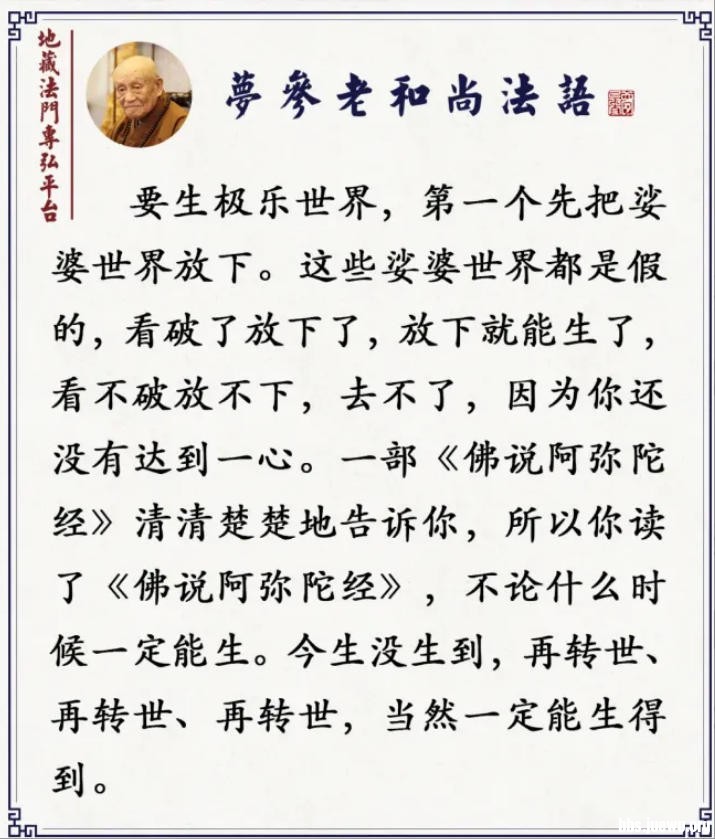 地藏法門專弘平台
夢參老和尚法語
要生极乐世界，第一个先把娑
婆世界放下。这些娑婆世界都是假
的，看破了放下了，放下就能生了，
看不破放不下，去不了，因为你还
没有达到一心。一部《佛说阿弥陀
经》清清楚楚地告诉你，所以你读
了《佛说阿弥陀经》，不论什么时
候一定能生。今生没生到，再转世、
再转世、再转世，当然一定能生得
到。